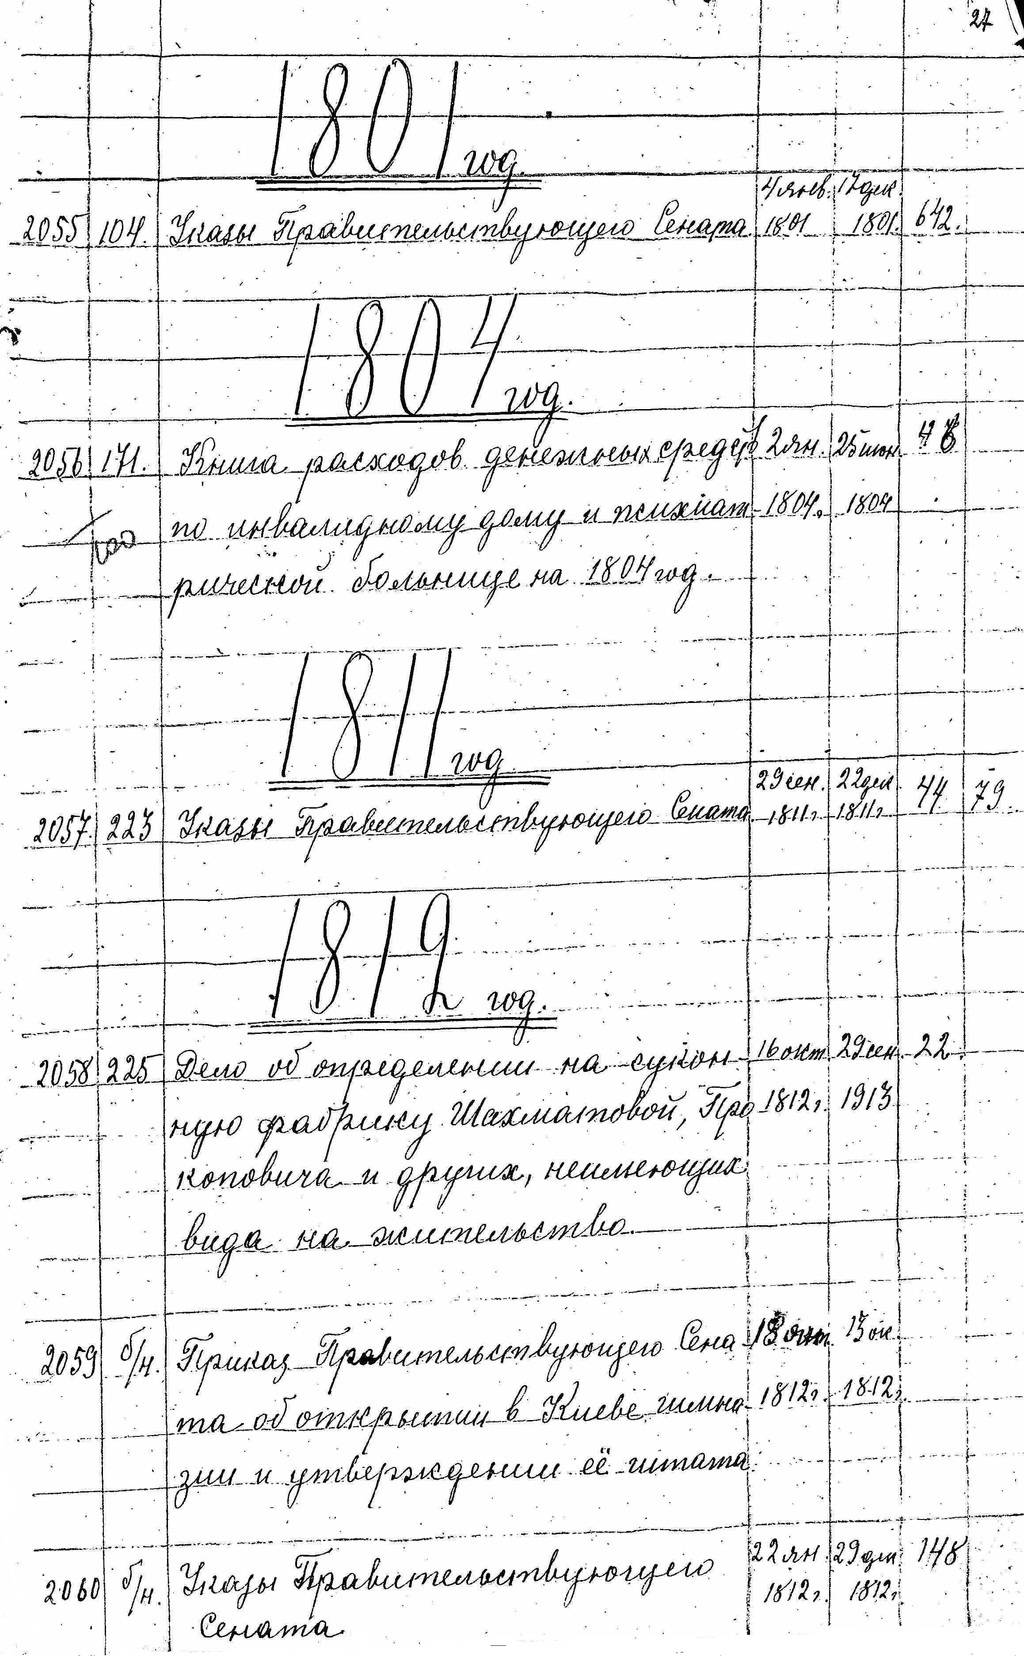 27
1801 год.
4 янв. 17 дек.
2055 104. Указы Правительствующего Сената 1801 1801. 642.
1804 год.
2056 171. Книга расходов денежных средств 2 ян. 25 июн.
по инвалидному дому и психиат 1804. 1804
рической больнице на 1804 год.
1811 год
29 сен. 22 дек. 44 79.
2057 223 Указы Правительствующего Сената 1811г. 1811г.
1812 год.
2058 225 Дело об определении на сукон 16 окт 29 сен 22.
ную фабрику Шахматовой, Про 1812г. 1913
коповича и других, неимеющих
вида на жительство.
2059 б/н. Приказ Правительствующего Сена 15 ок.
та об открытии в Киеве гимна 1812г. 1812г.
зии и утверждении её штата.
2060 б/н. Указы Правительствующего 22 ян. 29 дек 148
Сената 1812г. 1812г.